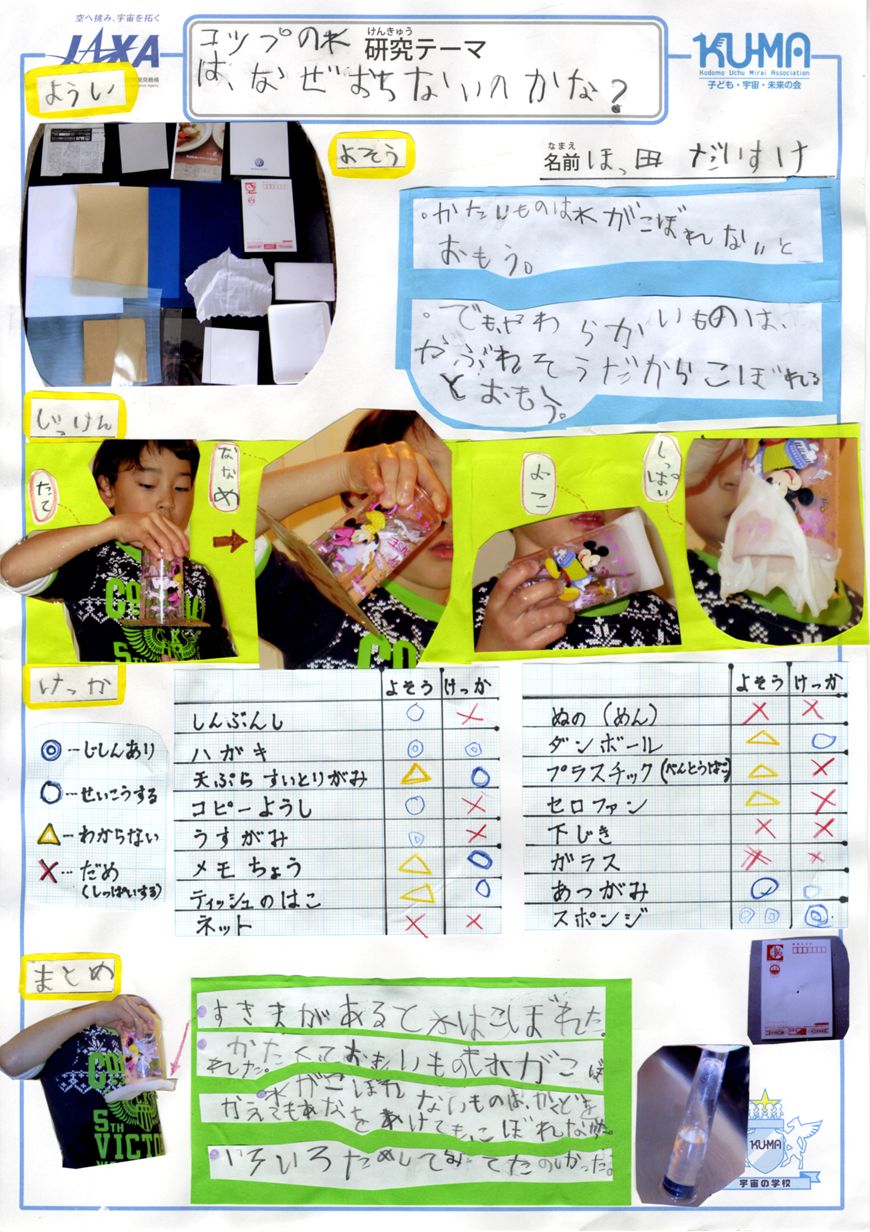 空へ挑み、宇宙を拓く
JAXA
コップの水 研究テーマ
けんきゅう
は、なぜおちないのかな？
KU-MA
Kodomo Uchu Mirai Association
子ども・宇宙・未来の会
ようい
よそう
なまえ
名前 ほっ田 だいすけ
・かたいものは水がこぼれないと
おもう。
・でも、やわらかいものは、
やぶれそうだからこぼれる
とおもう。
じっけん
たて
ななめ
よこ
しっぱい
けっか
◎…じしんあり
○…せいこうする
△…わからない
×…だめ
(しっぱいする)
よそう けっか
しんぶんし ○ ×
ハガキ ◎ ◎
天ぷらすいとりがみ △ ○
コピーようし ○ ×
うすがみ ◎ ×
メモちょう △ ○
ティッシュのはこ △ ○
ネット × ×
よそう けっか
ぬの(めん) × ×
ダンボール △ ○
プラスチック(べんとうばこ) △ ×
セロファン △ ×
下じき × ×
ガラス × ×
あつがみ ○ ○
スポンジ ◎◎ ◎
まとめ
すきまがあると水はこぼれた。
かたくておもいものも水がこぼ
れた。
水がこぼれないものは、かくどを
かえてもあなをあけても、こぼれない。
いろいろためしてみてたのしかった。
KUMA
宇宙の学校